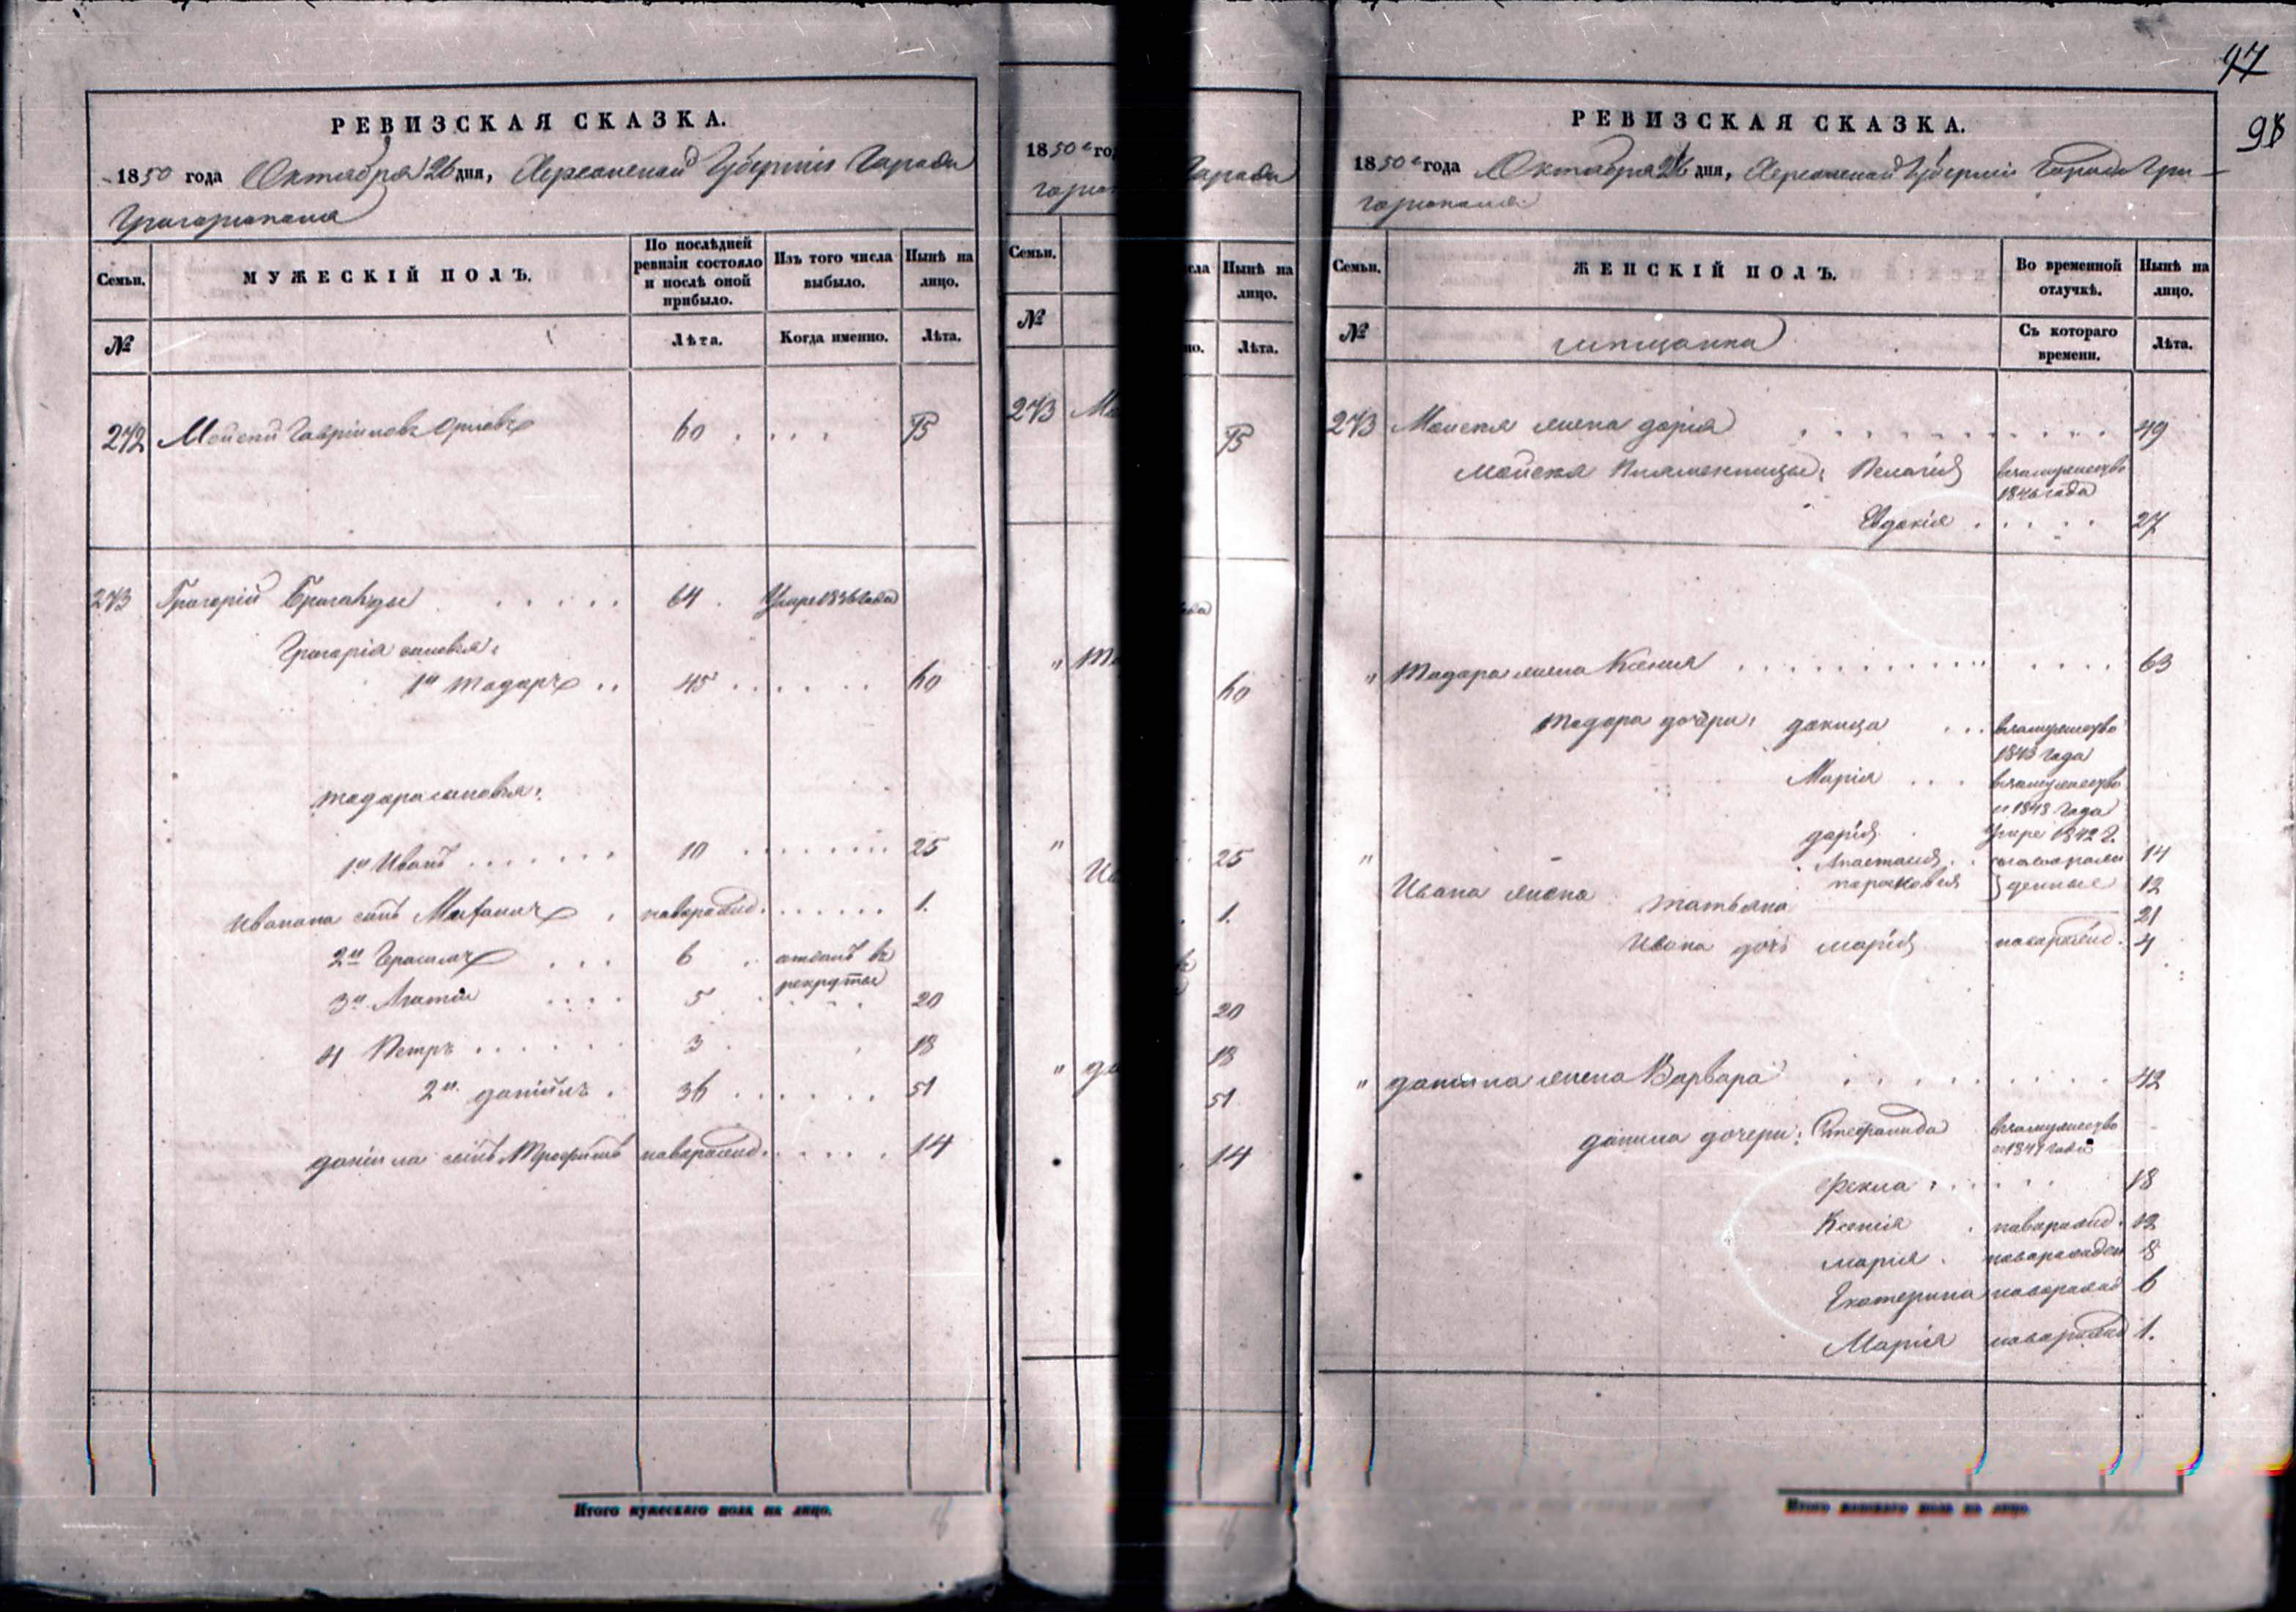 РЕВИЗСКАЯ СКАЗКА.
1850 года Октября 26 дня, Херсонской Губерніи Города
Григоріополя
Семьи. МУЖЕСКІЙ ПОЛЪ. По послѣдней ревизіи состояло и послѣ оной прибыло. Изъ того числа выбыло. Нынѣ на лицо.
№ Лѣта. Когда именно. Лѣта.
272 Мойсей Гавріиловъ Орловъ 60 75
273 Григорій 64 Умре 1836 года
Григорія сыновья:
1й Тодаръ 45 60
Тодара сыновья:
1й Иванъ 10 25
Ивана сынъ новорожд. 1.
2й Герасимъ 6 отданъ въ рекруты
3й 5 20
4 Петръ 3 18
2й Даніилъ 36 51
Даніила сынъ Трофимъ новорожд. 14
Итого мужескаго пола на лицо.
1850 го
Города
Семьи.
Нынѣ на лицо.
№
Лѣта.
273 Мо
75
60
25
Ив
1.
20
18
51
14
97
98
РЕВИЗСКАЯ СКАЗКА.
1850 года Октября 26 дня, Херсонской Губерніи Города Гри-
горіополя
Семьи. ЖЕНСКІЙ ПОЛЪ. Во временной отлучкѣ. Нынѣ на лицо.
№ мещанка Съ котораго времени. Лѣта.
273 Мойсея жена Дарія 49
Мойсея племенницы: Пелагія взамужество 1846 года
Евдокія 27
" Тодара жена Ксенія 63
Тодора дочери: Докица взамужество
1843 года
Марія взамужество
1848 года
Дарія умре 1842 г.
" Анастасія 14
Парасковія 12
Ивана жена Татьяна 21
Ивана дочь Марія новорожд. 4
" Данила жена Варвара 42
Данила дочери: Стефанида взамужество
Фекла 18
Ксенія новорожд. 12
Марія новорожден 8
Екатерина новорожд 6
Марія новорожд 1.
Итого женскаго пола на лицо